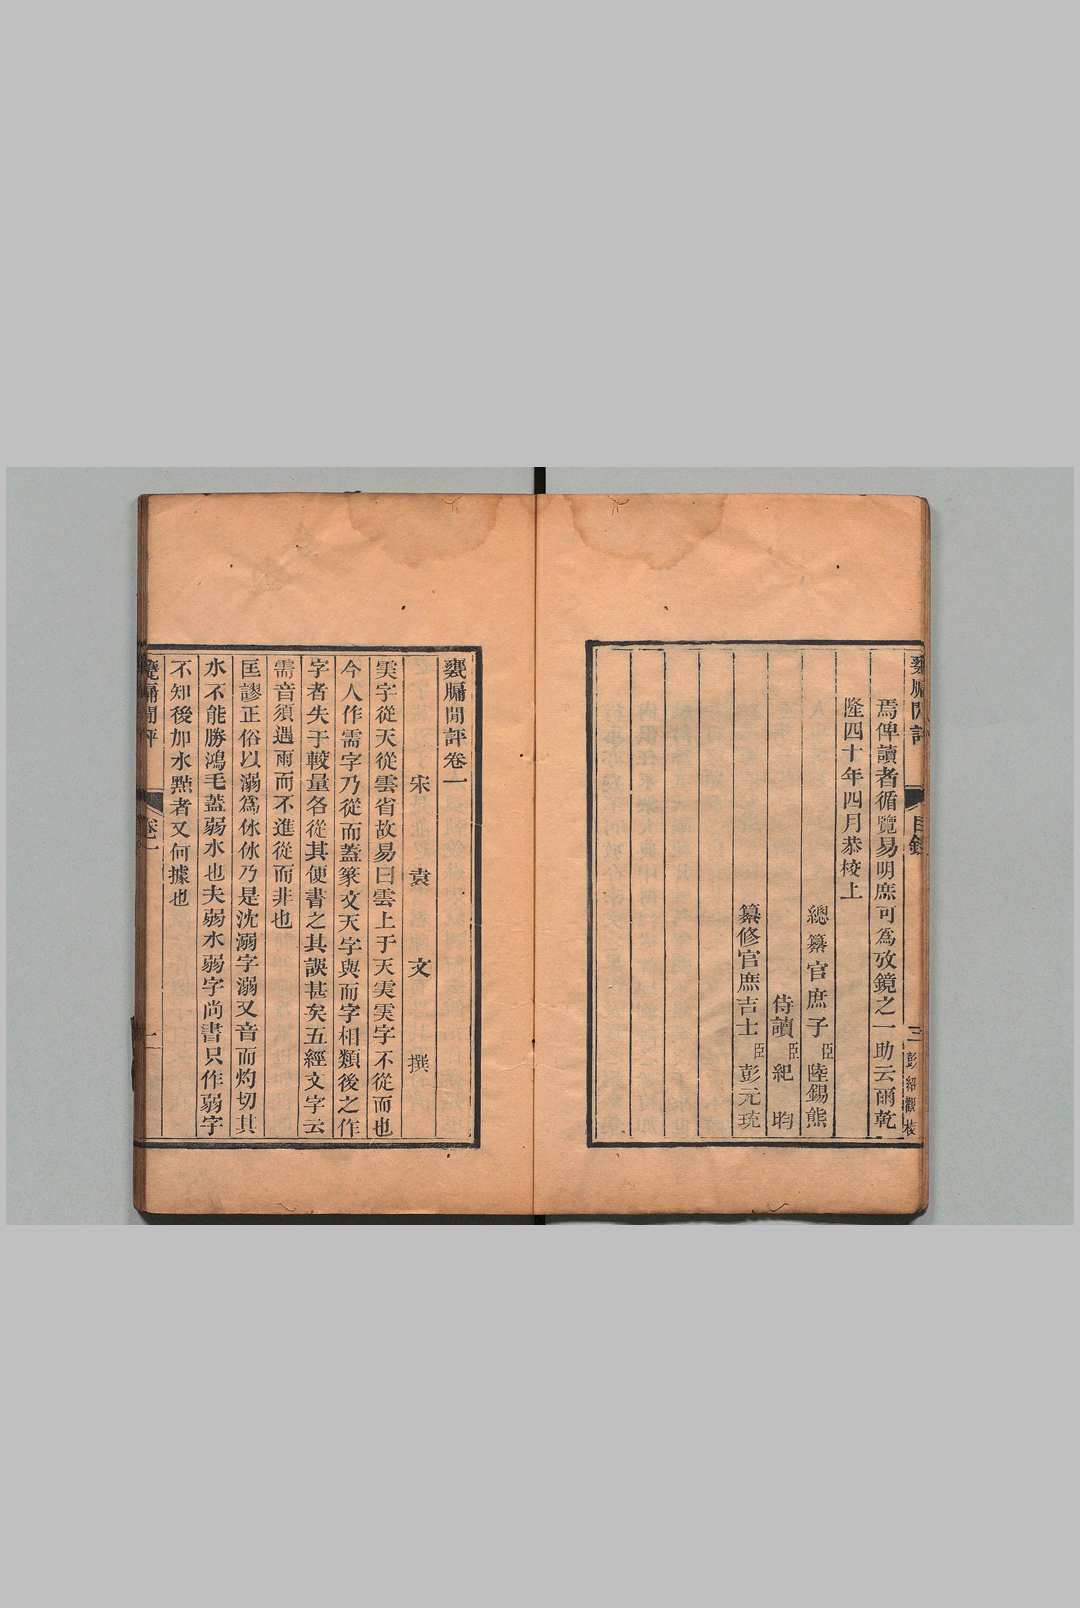 甕牖閒評
目錄
三
彭紹觀校
焉俾讀者循覽易明庶可為攷鏡之一助云爾乾
隆四十年四月恭校上
總纂官庶子臣陸錫熊
侍讀臣紀昀
纂修官庶吉士臣彭元珫
甕牖閒評卷一
宋袁文撰
䨙字從天從雲省故易曰雲上于天䨙䨙字不從而也
今人作需字乃從而蓋篆文天字與而字相類後之作
字者失于較量各從其便書之其誤甚矣五經文字云
需音須遇雨而不進從而非也
匡謬正俗以溺為㲻㲻乃是沈溺字溺又音而灼切其
水不能勝鴻毛蓋弱水也夫弱水弱字尚書只作弱字
不知後加水㸃者又何據也
甕牖閒評
卷一
一